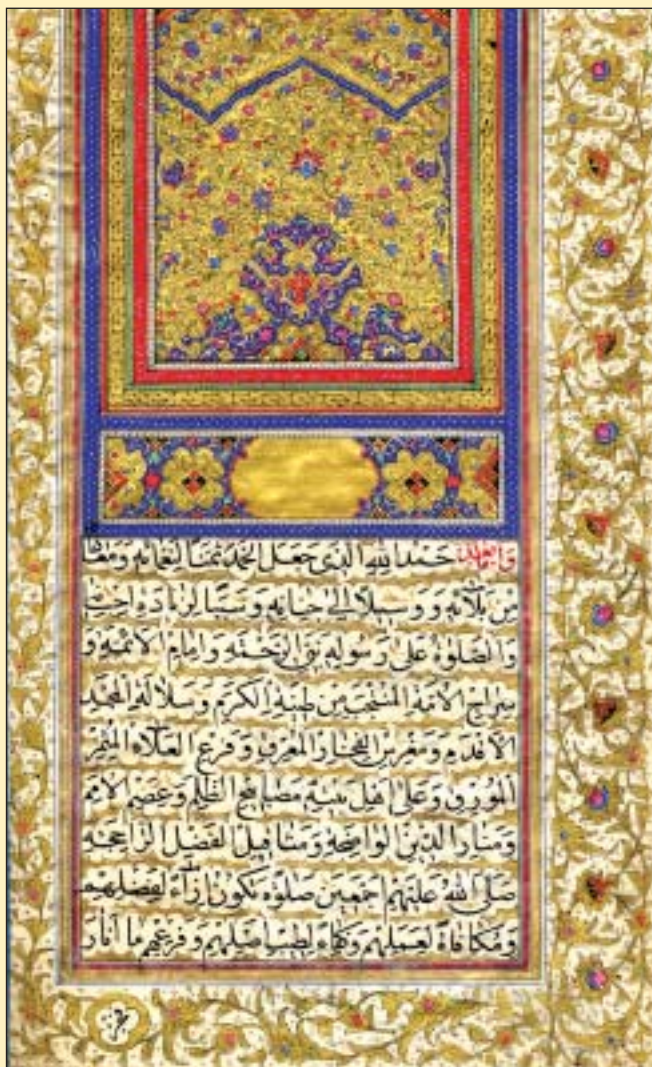 اما بعد حَمْدِ اللهِ الَّذي جَعَلَ الحَمْدَ ثَمَنًا لِنَعْمائِهِ وَمَعاذًا
مِنْ بَلائِهِ وَوَسيلًا اِلى جِنانِهِ وَسَبَبًا لِزِيادَةِ
وَالصَّلوةُ عَلى رَسولِهِ نَبيِّ الرَّحْمَةِ وَاِمامِ الاَئِمَّةِ وَ
سِراجِ الاُمَّةِ المُنْتَجَبِ مِنْ طينَةِ الكَرَمِ وَسُلالَةِ المَجْدِ
الاَقْدَمِ وَمَغْرِسِ الفَخارِ المُعْرِقِ وَفَرْعِ العَلاءِ المُثْمِرِ
المُورِقِ وَعَلى اَهْلِ بَيْتِهِ مَصابيحِ الظُّلَمِ وَعِصَمِ الاُمَمِ
وَمَنارِ الدّينِ الواضِحَةِ وَمَثاقيلِ الفَضْلِ الرّاجِحَةِ
صَلَّى اللهُ عَلَيْهِمْ اَجْمَعينَ صَلوةً تَكونُ اِزاءً لِفَضْلِهِمْ
وَمُكافاةً لِعَمَلِهِمْ وَكِفاءً لِطيبِ اَصْلِهِمْ وَفَرْعِهِمْ ما اَنارَ